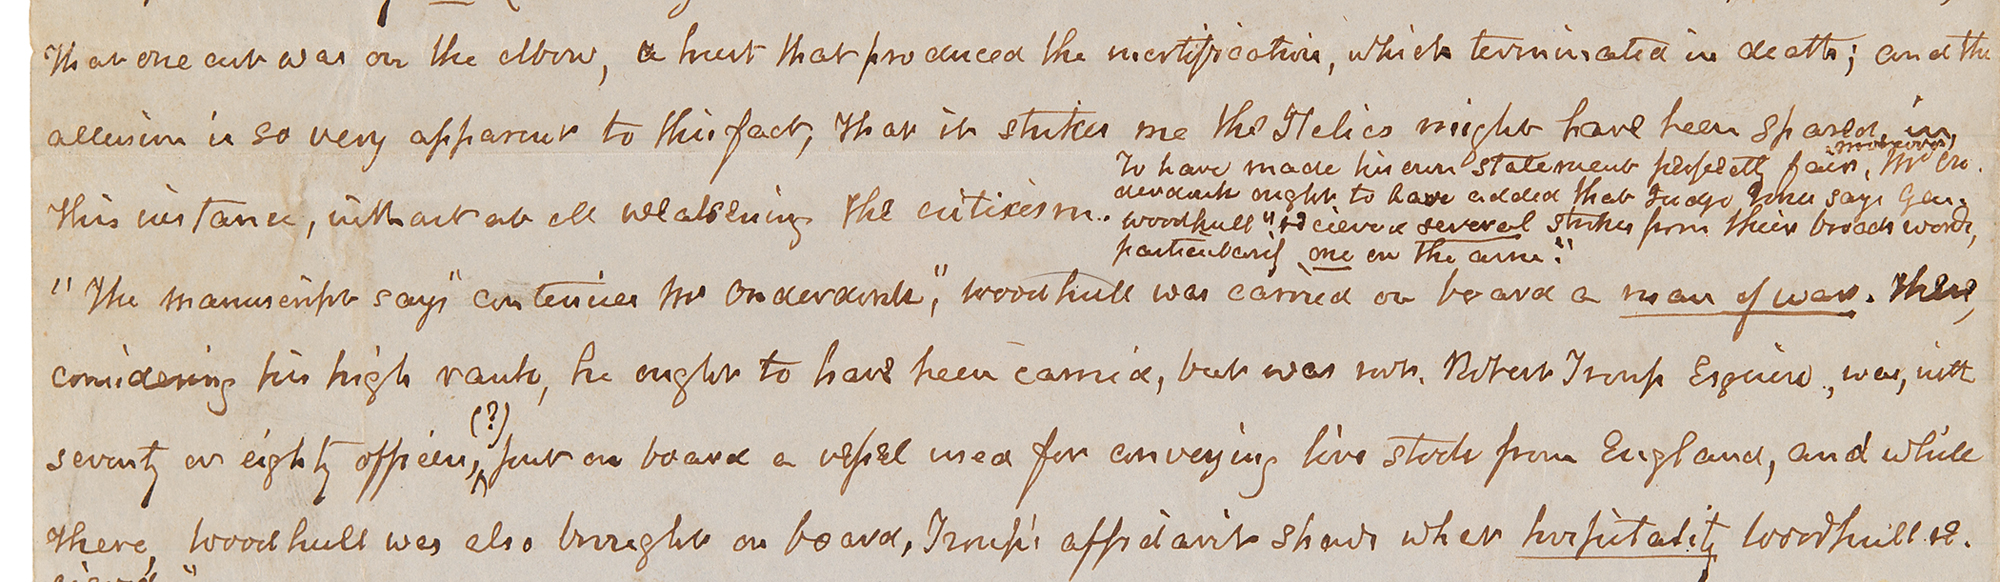 that one cut was on the elbow, a hurt that produced the mortification, which terminated in death; and the
allusion is so very apparent to this fact, that it strikes me the Italics might have been spared, in
this instance, without at all weakening the criticism.
moreover,
To have made his own statement perfectly fair, Mr On-
derdonk ought to have added that Judge Jones says Gen.
Woodhull "received several strokes from their broad swords,
particularly one on the arm."
"The manuscript says" continues Mr Onderdonk", Woodhull was carried on board a man of war. There,
considering his high rank, he ought to have been carried, but was not. Robert Troup Esquire, was, with
seventy or eighty officers, (?) put on board a vessel used for conveying live stock from England, and while
there, Woodhull was also brought on board, Troup's affidavit shows what hospitality Woodhull re-
ceived."